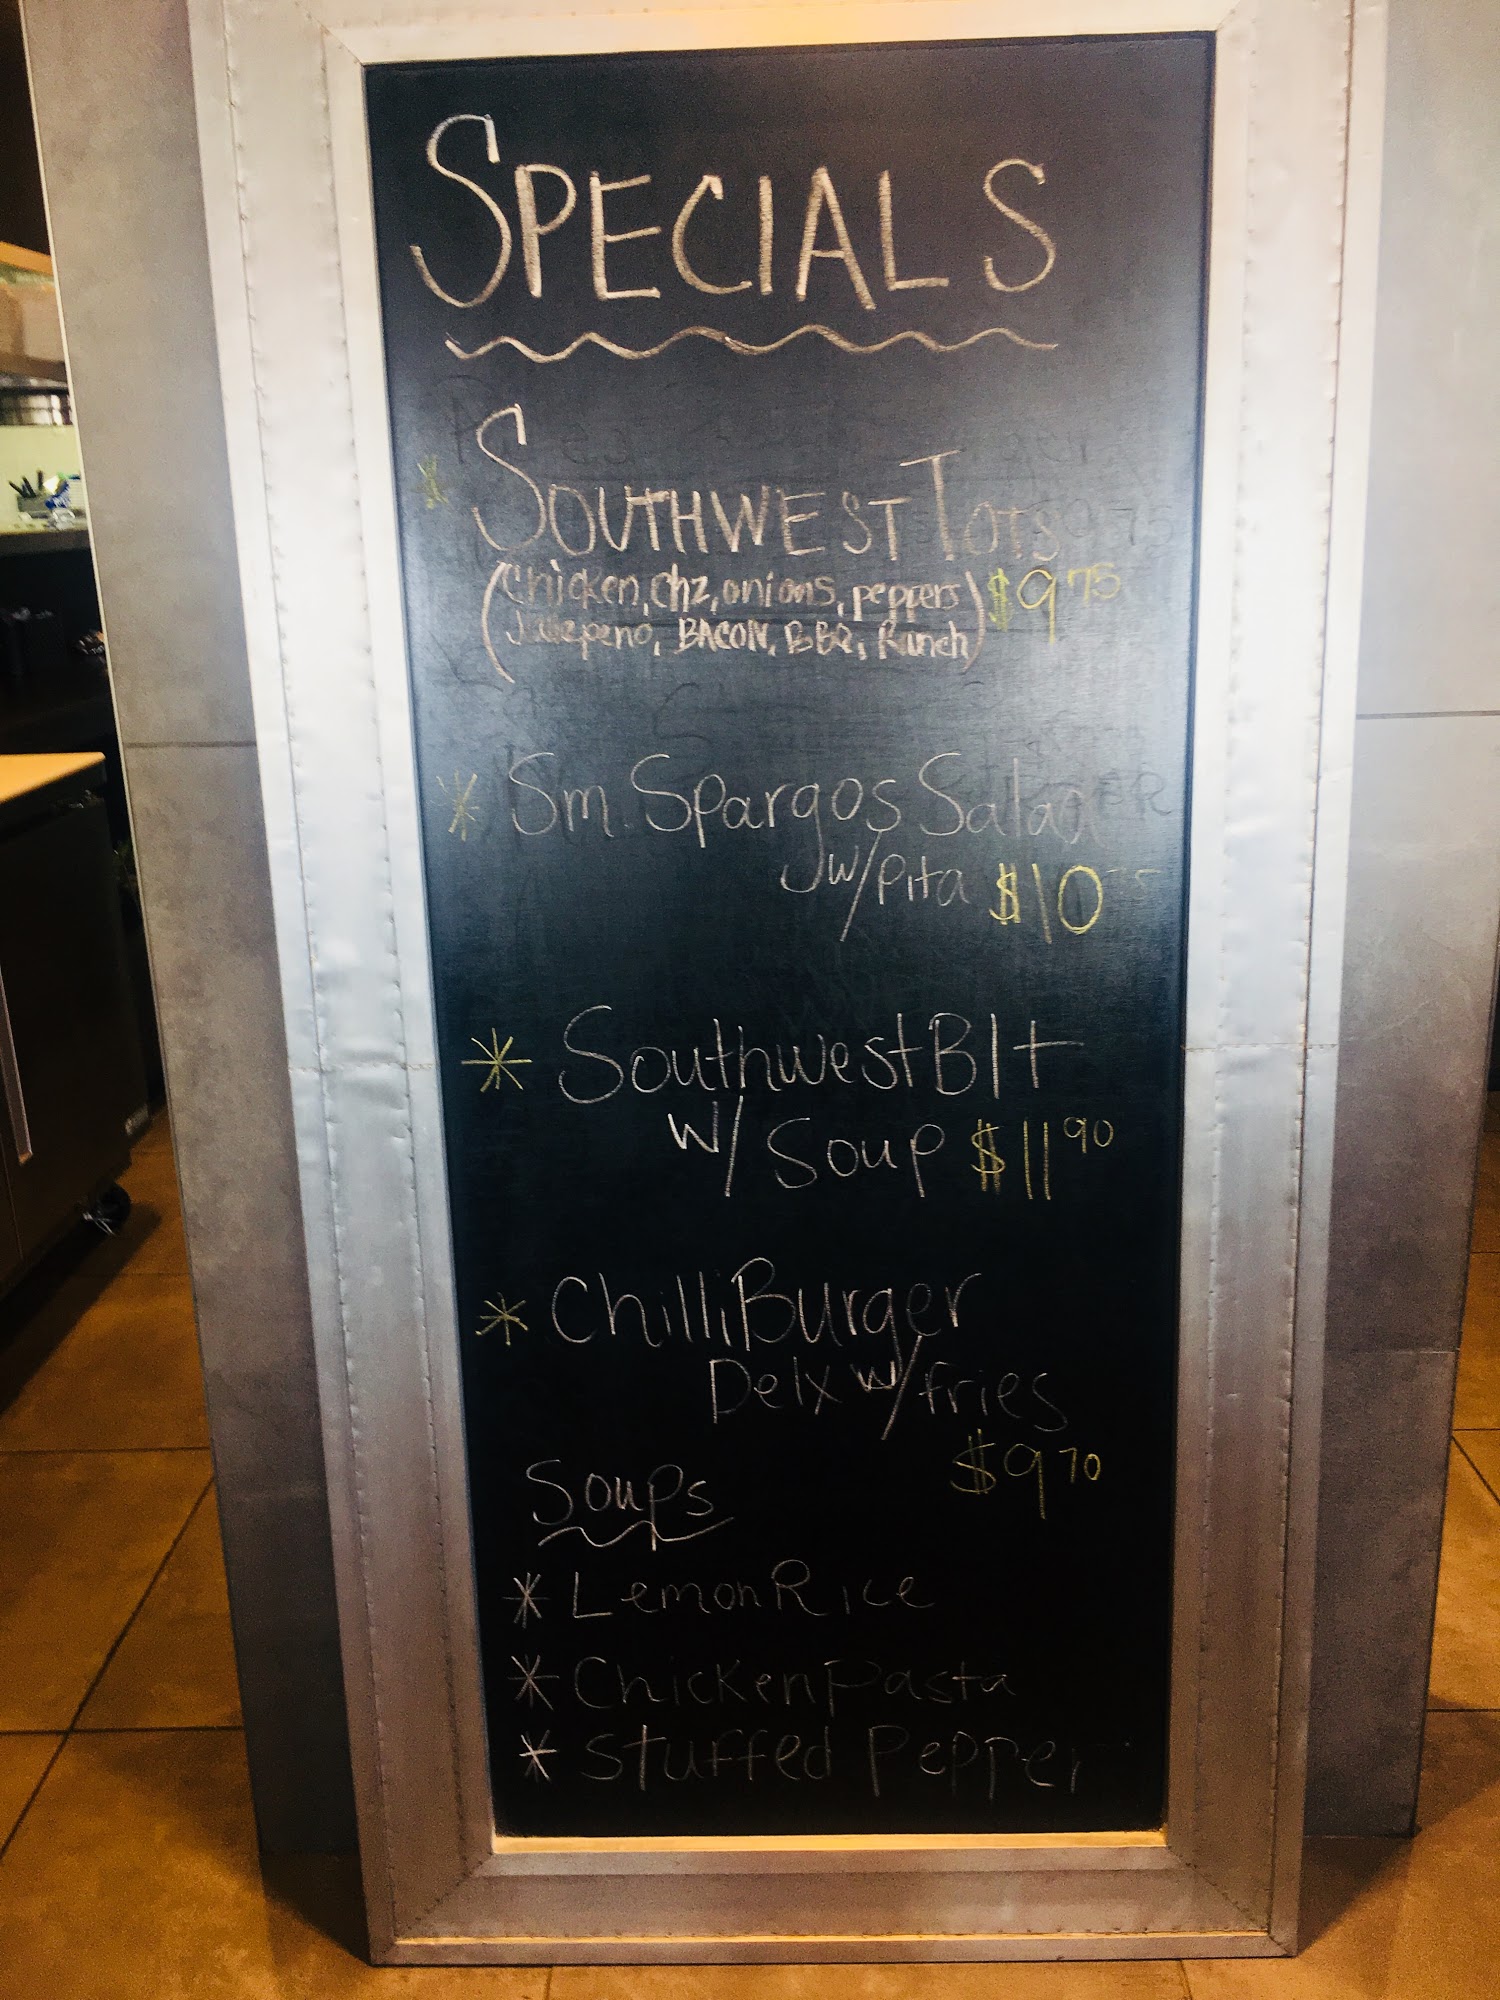 SPECIALS
* SOUTHWEST TOTS
(Chicken, chz, onions, peppers) $9 75
(Jalepeno, BACON, BBQ, Ranch)
* Sm. Spargos Salad
w/pita $10
* Southwest Blt
w/ Soup $11 90
* Chilli Burger
Delx w/fries
$9 70
Soups
* Lemon Rice
* Chicken Pasta
* Stuffed Pepper